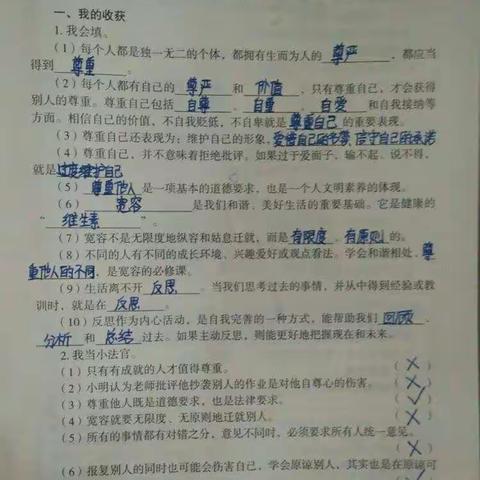 一、我的收获
1. 我会填。
(1) 每个人都是独一无二的个体，都拥有生而为人的 尊严 ，都应当
得到 尊重 。
(2) 每个人都有自己的 尊严 和 价值 ，只有尊重自己，才会获得
别人的尊重。尊重自己包括 自尊 、 自重 、 自爱 和自我接纳等
方面。相信自己的价值，不自我贬低，不自卑就是 尊重自己 的重要表现。
(3) 尊重自己还表现为：维护自己的形象，爱惜自己的名誉，信守自己的承诺
(4) 尊重自己，并不意味着拒绝批评。如果过于爱面子，输不起、说不得，
就是过度维护自己
(5) 尊重他人 是一项基本的道德要求，也是一个人文明素养的体现。
(6) 宽容 是我们和谐、美好生活的重要基础。它是健康的
“ 维生素 ”
(7) 宽容不是无限度地纵容和姑息迁就，而是 有限度 、有原则 的。
(8) 不同的人有不同的成长环境、兴趣爱好或观点看法。学会和谐相处，尊
重他人的不同，是宽容的必修课。
(9) 生活离不开 反思 。当我们思考过去的事情，并从中得到经验或教
训时，就是在 反思 。
(10) 反思作为内心活动，是自我完善的一种方式，能帮助我们 回顾 、
分析 和 总结 过去。如果主动反思，则能更好地把握现在和未来。
2. 我当小法官。
(1) 只有有成就的人才值得尊重。 (×)
(2) 小明认为老师批评他抄袭别人的作业是对他自尊心的伤害。 (×)
(3) 尊重他人既是道德要求，也是法律要求。 (√)
(4) 宽容就要无限度、无原则地迁就别人。 (×)
(5) 所有的事情都有对错之分，意见不同时，必须要求所有人统一意见。
(×)
(6) 报复别人的同时也可能会伤害自己，学会原谅别人，其实也是在原谅可